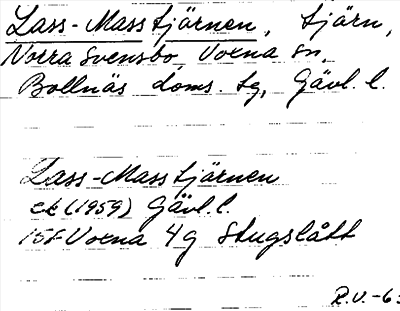 Lass-Masstjärnen, tjärn,
Norra Svensbo, Voxna sn,
Bollnäs doms. tg, Gävl. l.
Lass-Masstjärnen
ek (1959) Gävl. l.
15F Voxna 4g Stugslått
R.V. -63